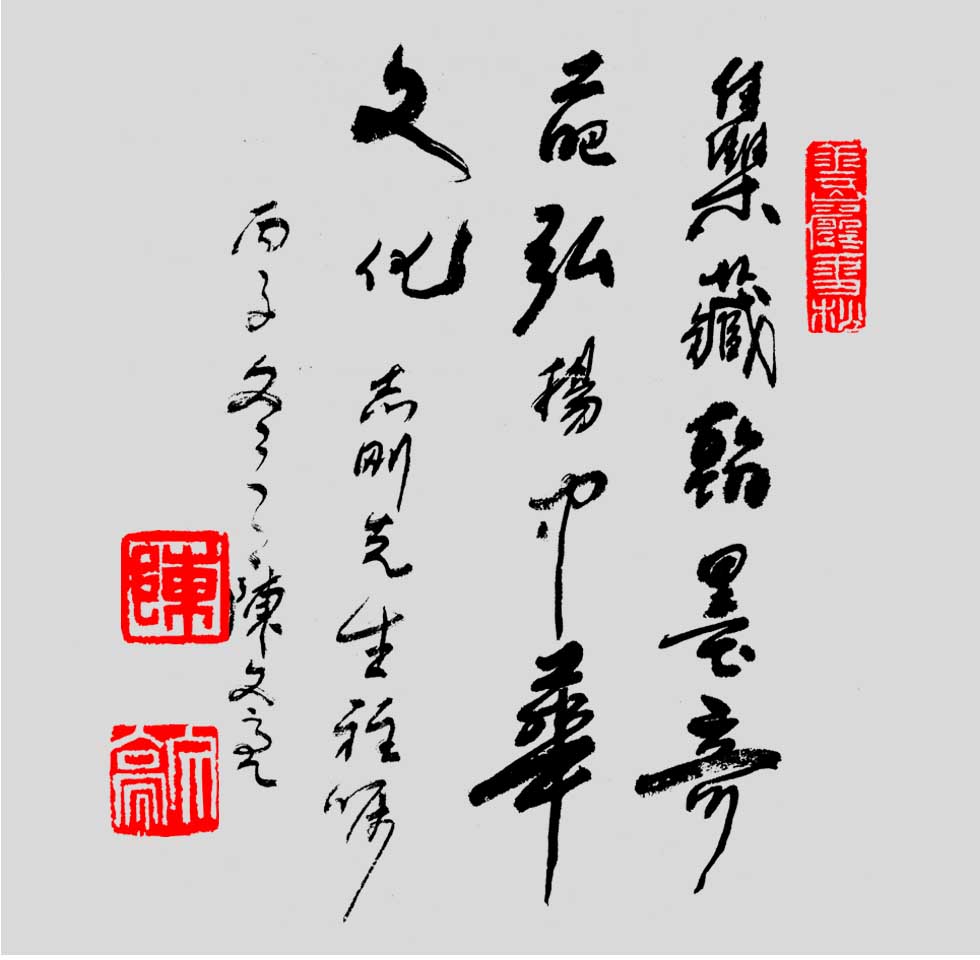 集藏翰墨奇
葩弘揚中華
文化 志刚先生雅嘱
丙子冬 陳文亮
陳
文亮